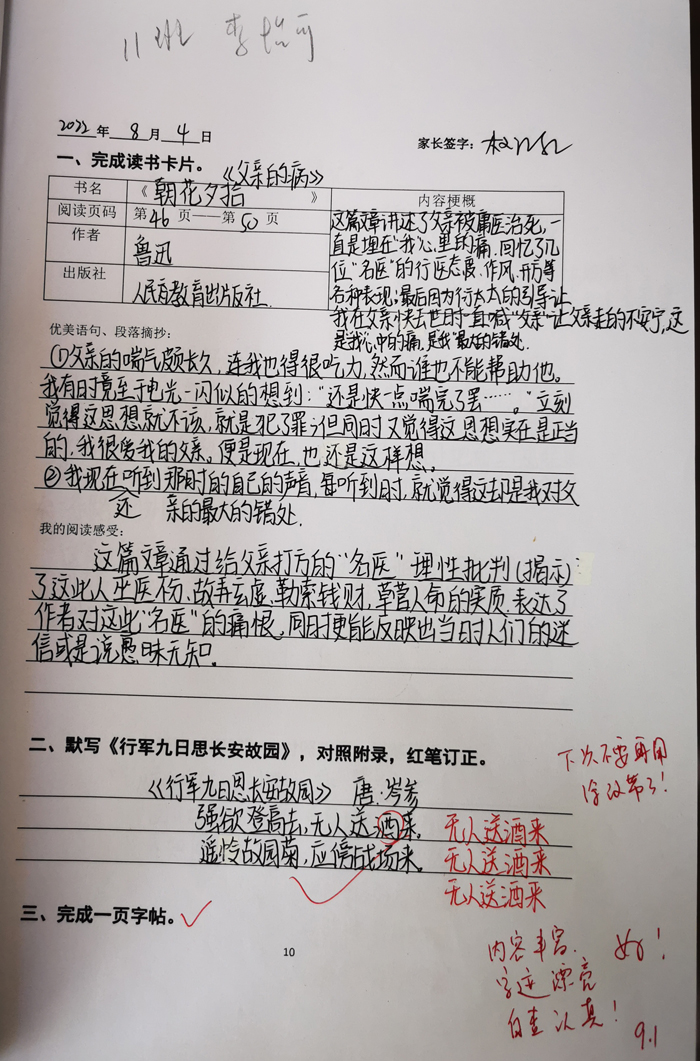 11班 李怡可
2022年 8月 4日 家长签字:
一、完成读书卡片。《父亲的病》
书名 《朝花夕拾》 内容梗概
阅读页码 第46页——第50页
作者 鲁迅
出版社 人民有教育出版社
这篇文章讲述了父亲被庸医治死,一
直是埋在“我”心里的痛.回忆了几
位“名医”的行医态度、作风、开方等
各种表现;最后因为衍太太的引导让
我在父亲快去世时一直喊“父亲”让父亲走的不安宁,这
是我心中的痛,是我“最大的错处.
优美语句、段落摘抄:
①父亲的喘气颇长久,连我也得很吃力,然而谁也不能帮助他。
我有时竟至于电光一闪似的想到:“还是快一点喘完了罢……。”立刻
觉得这思想就不该,就是犯了罪;但同时又觉得这思想实在是正当
的,我很爱我的父亲。便是现在,也还是这样想。
②我现在还听到那时的自己的声音,每听到时,就觉得这却是我对父
亲的最大的错处.
我的阅读感受:
这篇文章通过给父亲打方的“名医”理性批判(揭示)
了这此人巫医不分、故弄玄虚、勒索钱财,草菅人命的实质.表达了
作者对这此“名医”的痛恨。同时更能反映出当时人们的迷
信或是说愚昧无知.
二、默写《行军九日思长安故园》,对照附录,红笔订正。
《行军九日思长安故园》 唐·岑参
强欲登高去,无人送酒来. 无人送酒来
遥怜故园菊,应傍战场来. 无人送酒来
无人送酒来
下次不要再用
涂改带了!
三、完成一页字帖。
10
内容丰富. 好!
字迹漂亮
自查认真!
9.1